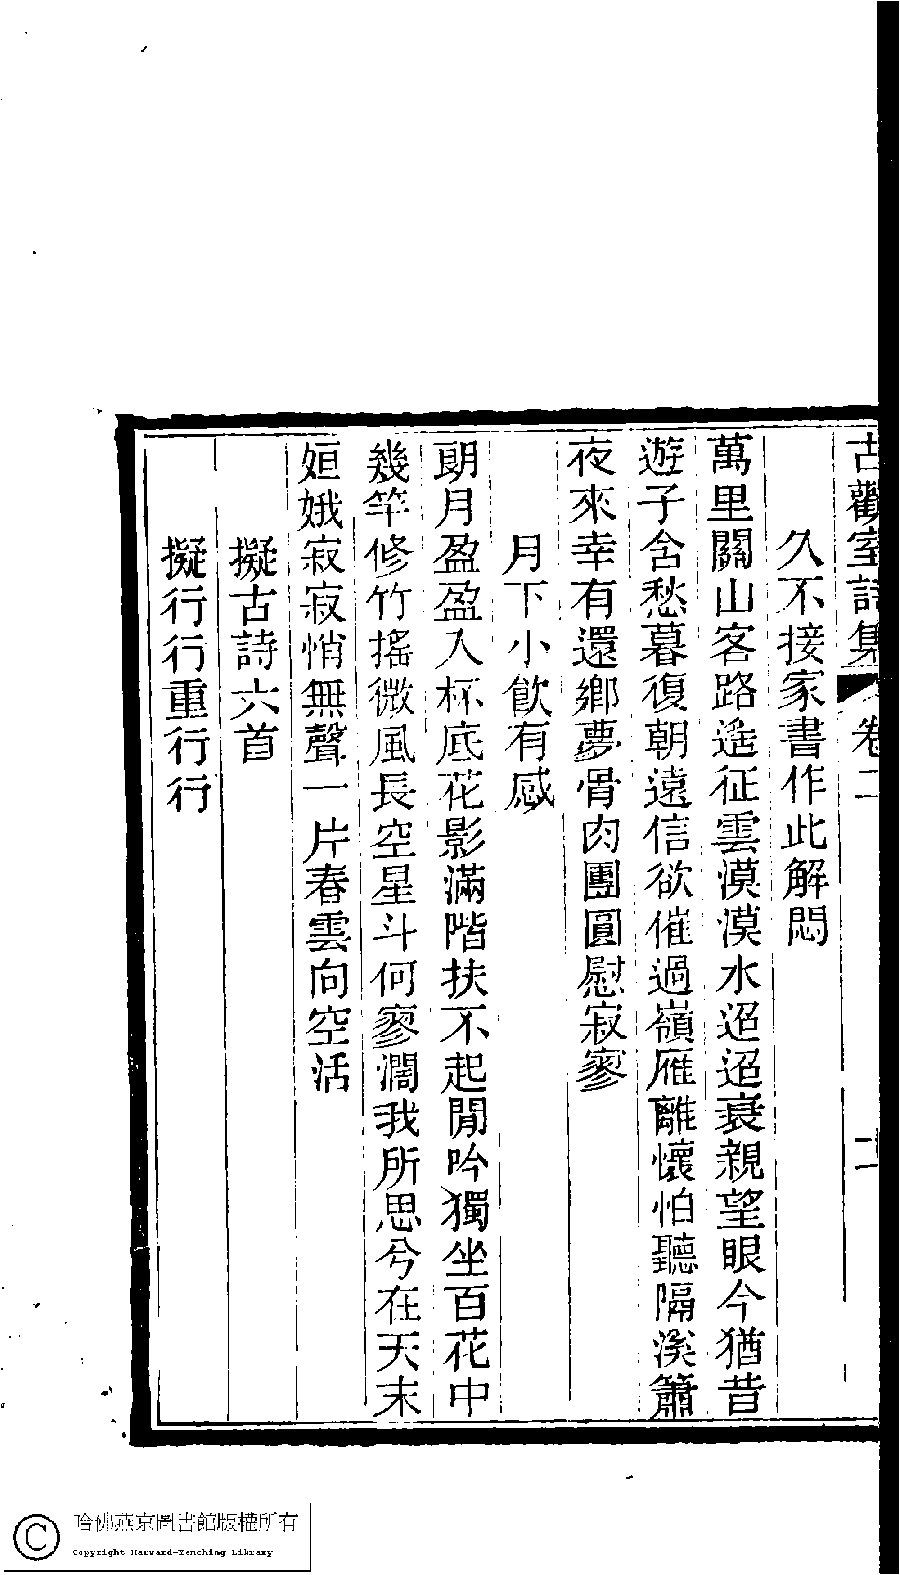 古觀室詩集 卷二 二
久不接家書作此解悶
萬里關山客路遙征雲漠漠水迢迢衰親望眼今猶昔
遊子含愁暮復朝遠信欲催過嶺雁離懷怕聽隔溪簫
夜來幸有還鄉夢骨肉團圓慰寂寥
月下小飲有感
朗月盈盈入杯底花影滿階扶不起閒吟獨坐百花中
幾竿修竹搖微風長空星斗何寥濶我所思兮在天末
姮娥寂寂悄無聲一片春雲向空活
擬古詩六首
擬行行重行行
哈佛燕京圖書館版權所有
Copyright Harvard-Yenching Library